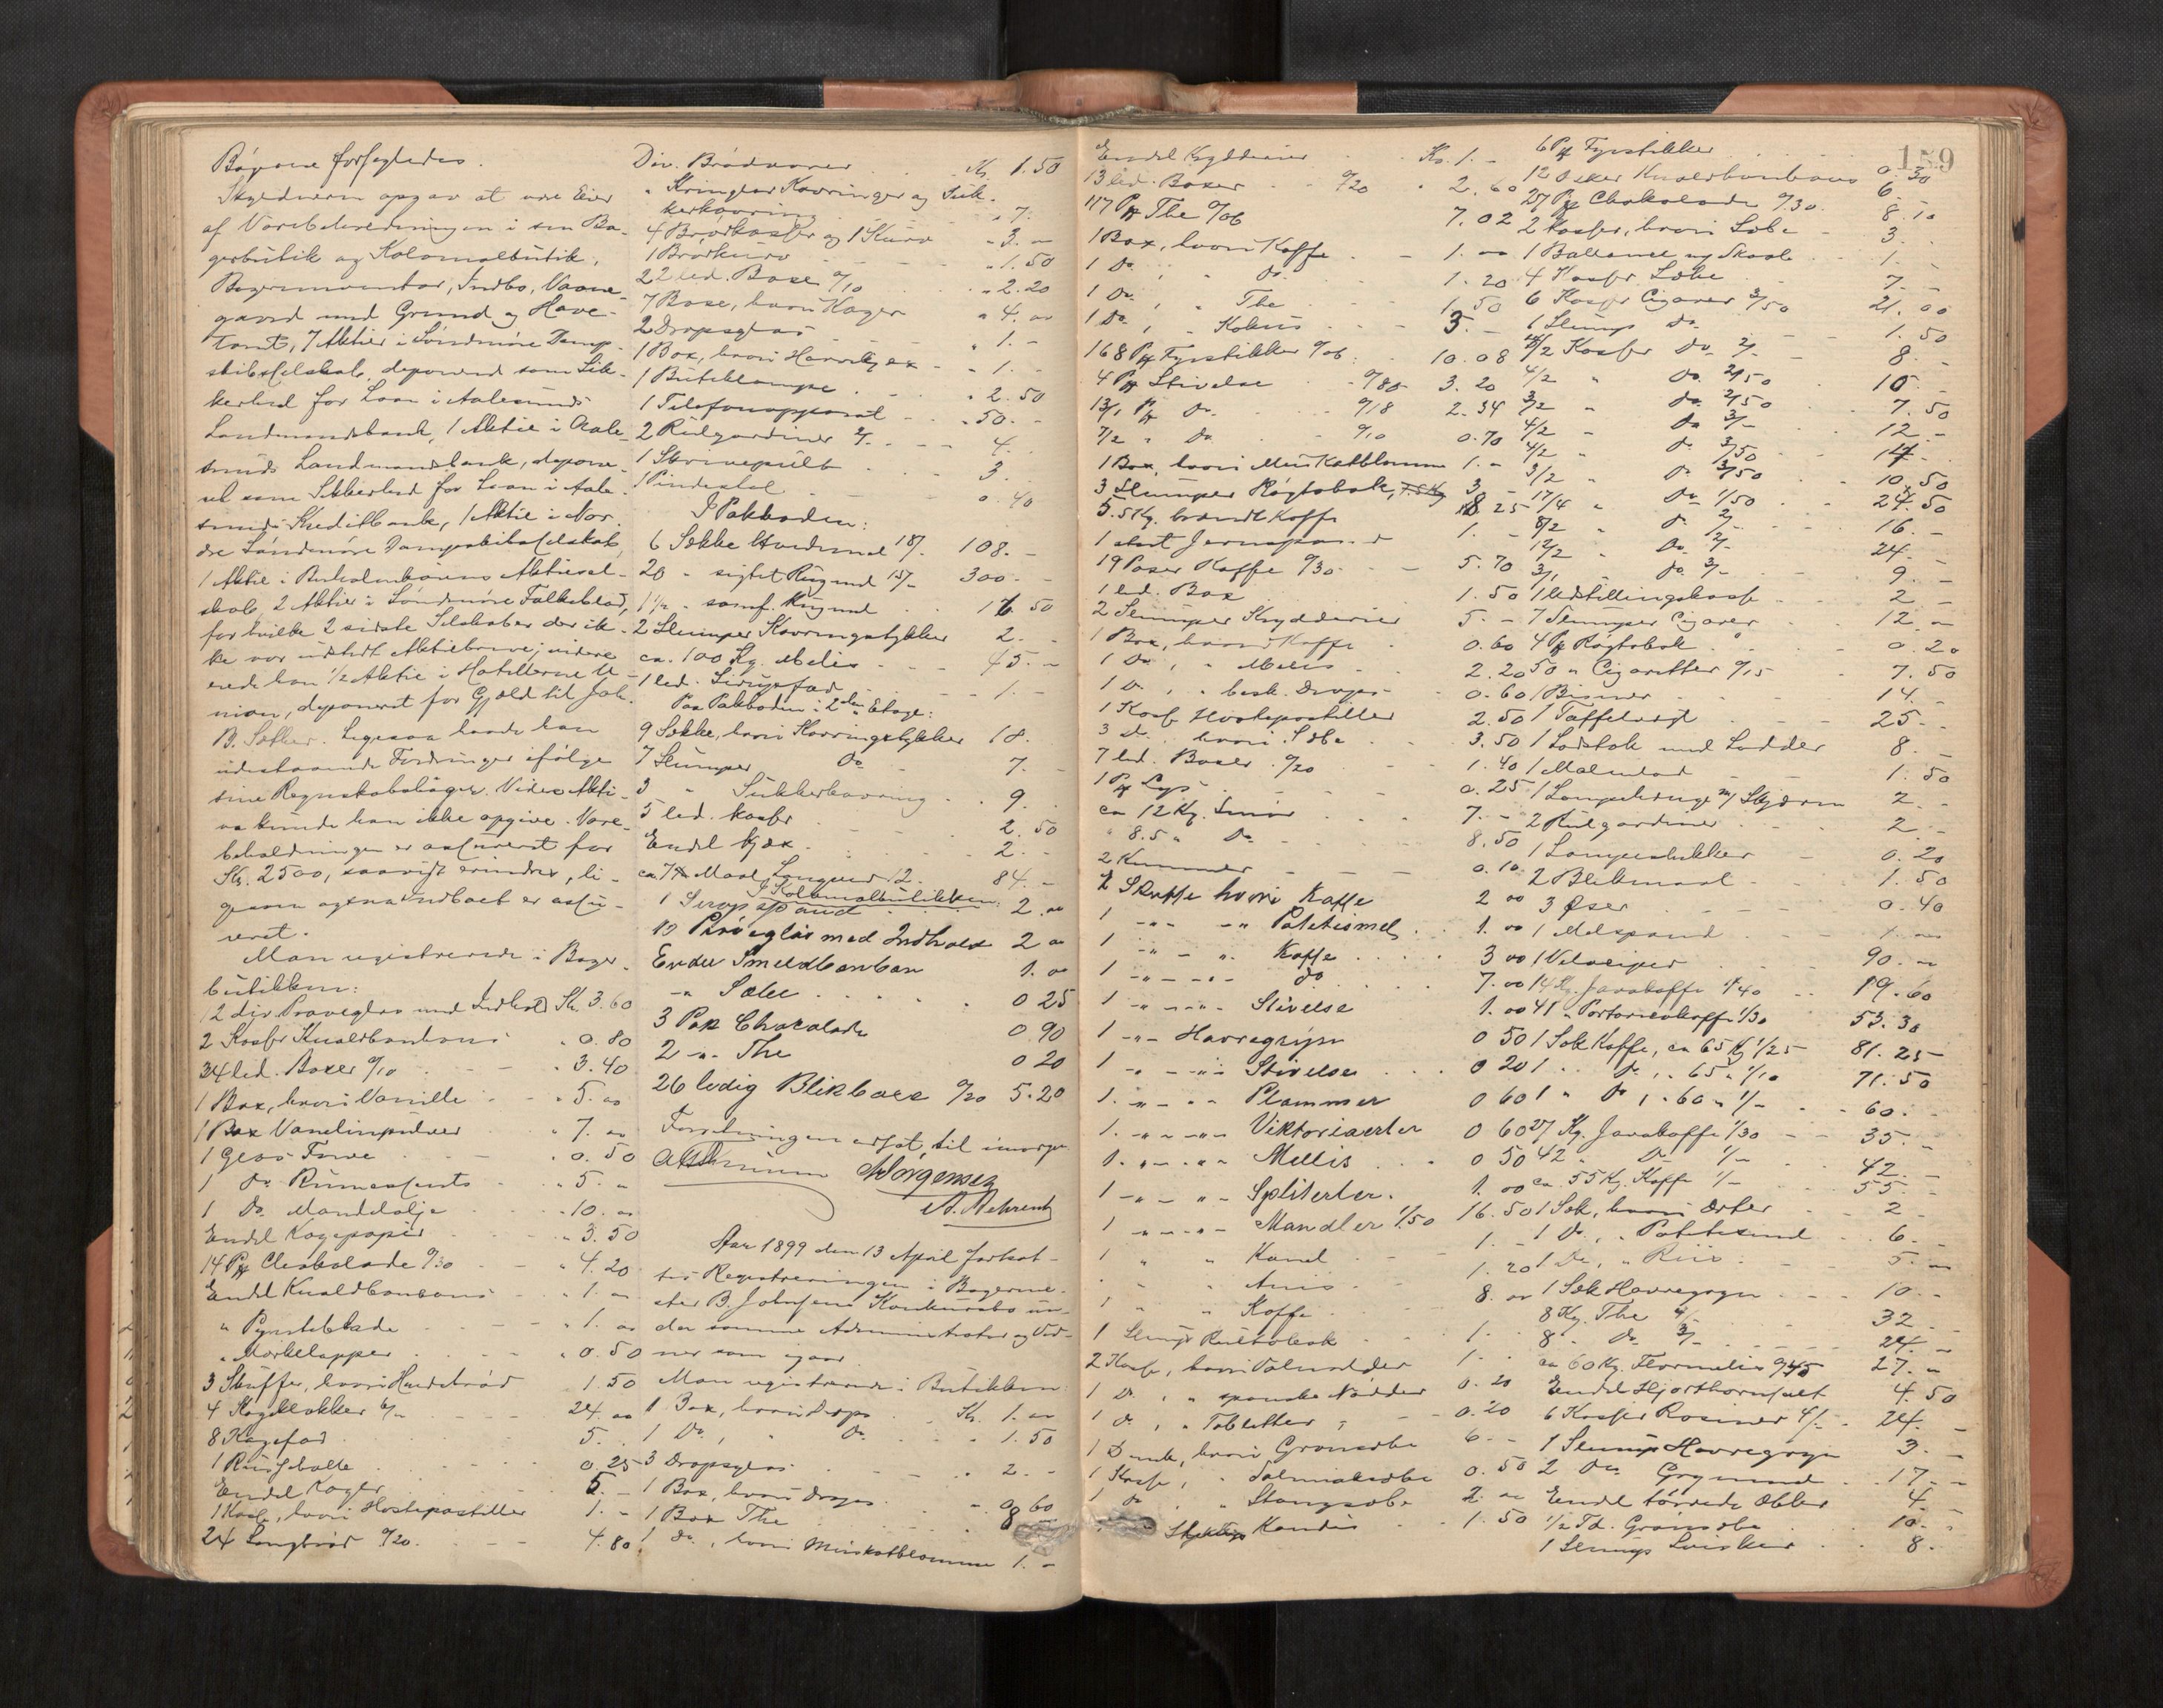 Bøgerne forsegledes.
Skyldneren opgav at være Eier
af Varebeholdningen i sin Ba-
gerbutik og Kolonialbutik,
Bagerinventar, Indbo, Vaane-
gaard med Grund og Have-
tomt, 7 Aktier i Søndmøre Damp-
skibsselskab, deponeret som Sik-
kerhed for Laan i Aalesunds
Landmandsbank, 1 Aktie i Aale-
sunds Landmandsbank, depone-
ret som Sikkerhed for Laan i Aale-
sunds Kreditbank, 1 Aktie i Nor-
dre Søndmøre Dampskibsselskab,
1 Aktie i Aktiesel-
skab, 2 Aktier i Søndmøre Folkeblad,
for hvilke 2 sidste Selskaber der ik-
ke var udstedt Aktiebreve; videre
eiede han 1/2 Aktie i Hotellerne U-
nion, deponeret for Gjæld til Joh.
B. Sæther. Ligesaa havde han
udestaaende Fordringer ifølge
sine Regnskabsbøger. Videre Akti-
va kunde han ikke opgive. Vare-
beholdningen er assureret for
Kr. 2500, saavidt erindres, li-
gesom ogsaa Indboet er assu-
reret.
Man registrerede i Bager-
butikken:
12 div. Prøveglas med Indhold Kr. 3.60
2 Kasser Knaldbonbons " 0.80
34 led. Boxer 0/10 " 3.40
1 Box, hvori Vanille " 5. "
1 Box Vanelinpulver " 7. "
1 Glas Farve " 0.50
1 Do. Rumessents " 5. "
1 Do. Mandelolje " 10. "
Endel Kagepapir " 3.50
14 Pk Chokolade 0/30 " 4.20
Endel Knaldbonbons " 1. "
" Pynteblade " 1. "
" Mærkelapper " 0.50
3 Skuffer, hvori Hvedebrød 1.50
4 Kageklokker 6/- 24. "
8 Kagefad 5. -
1 0.25
Endel Kager 5. -
1 Kasse, hvori Hostepastiller 1. -
24 Langbrød 0/20 4.80
Div. Brødvarer Kr. 1.50
" Kringler Kavringer og Suk-
kerkavring " 7. -
4 Brødkasser og 1 Kurv " 3. "
1 Brødkurv " 1.50
22 led. Boxe 0/10 " 2.20
7 Boxe, hvori Kager " 4. "
2 Dropsglas " 1. -
1 Box, hvori " 1. -
1 Butiklampe " 2.50
1 Telefonapparat " 50. -
2 Rulgardiner 2/- 4. -
1 Skrivepult 3. -
1 Pindestol 0.40
I Pakboden:
6 Sække Hvedemel 18/- 108. -
20 " sigtet Rugmel 15/- 300. -
1 1/2 " samf. Rugmel 16.50
2 Slumper Kavringstykker 2. -
ca. 100 Kg. Melis 45. "
1 led. Sirupsfad 1. -
Paa Pakboden i 2den Etage:
9 Sække, hvori Kavringstykker 18. -
7 Slumper Do 7. -
3 " Sukkerkavring 9. -
5 led. Kasser 2.50
Endel Kjæx 2. -
ca. 7 Maal 12. 84. -
I Kolonialbutikken:
1 Sirupspand 2. "
10 Prøveglas med Indhold 2 "
Endel Smeldbonbon 1. "
" Sæbe 0 25
3 Pak Chocolade 0 90
2 " The 0 20
26 ledig Blikboxe 0/20 5.20
Forretningen udsat til imorgen
Jørgensen
A. Behrentz
Aar 1899 den 13 April fortsat-
tes Registreringen i Bagerme-
ster B. Johnsens Konkursbo un-
der samme Administrator og Vid-
ner som igaar.
Man registrerede i Butikken:
1 Box, hvori Drops Kr. 1. "
1 Do, " Do. 1.50
3 Dropsglas 2. -
1 Box, hvori Drops 0 60
1 Box The 8 -
1 Do., hvori Muskatblomme 1. -
159
Endel Krydderier Kr. 1. -
13 led. Boxer 0/20 " 2.60
117 Pk The 0/06 7.02
1 Box, hvori Kaffe 1. -
1 Do. " Do. 1.20
1 Do. " The 1.50
1 Do. " Kakao 3. -
168 Pk Fyrstikker 0/06 10.08
4 Pk Stivelse 0/80 3.20
13/1 Pk Do. 0/18 2.34
7/2 " Do. 0/10 0.70
1 Box, hvori Muskatblomme 1. "
3 Slumper Røgtobak, 3 -
5.5 Kg. brændt Kaffe 8 25
1 stort 1. -
19 Poser Kaffe 0/30 5.70
1 led. Box 1.50
2 Slumper Krydderier 5. -
1 Box, hvori Kaffe 0.60
1 Do, " Melis 2.20
1 Do, " besk. Drops 0.60
1 Kasse Hostepastiller 2.50
3 Do. hvori Sæbe 3.50
7 led. Boxer 0/20 1.40
1 Pk Lys 0.25
ca 12 Kg. Smør 7. -
" 8.5 " Do 8.50
2 Kummer 0.10
2 Skuffe hvori Kaffe 2 00
1 -"- -"- Potetismel 1. 00
1 -"- -"- Kaffe 3 00
1 -"- -"- do 7. 00
1 -"- -"- Stivelse 1. 00
1 -"- Havregryn 0 50
1 -"- -"- Stivelse 0 20
1. -"- -"- Plommer 0 60
1. -"- -"- Viktoriaerter 0 60
1. -"- -"- Mellis 0 50
1 -"- -"- Spliterter. 1. 00
1 -"- -"- Mandler 1/.50 16.50
1 " " Kanel 1. -
" " Anis 1.20
1 " " Kaffe 8. "
1 Slump Rultobak 1. -
2 Kasse, hvori Valnødder 1. -
1 Do, " spanske Nødder 0.20
1 Do, " Tabletter 0.20
1 Dunk, hvori Grønsæbe 6. -
1 Kasse, " Salmiaksæbe 0.50
1 Do, " Stangsæbe 2. "
Kandis 1.50
6 Pk Fyrstikker 0.30
12 Æsker Knaldbonbons 6. -
27 Pk Chokolade 0/30 8.10
2 Kasser, hvori Sæbe 3. -
1 Ballance og Skaale 1. -
4 Kasser Sæbe 7. -
6 Kasser Cigarer 3/50 21.00
1 Slump Do. 1.50
4/2 Kasser Do. 2/- 8. -
4/2 " Do. 2/50 10. -
3/2 " Do. 2/50 7.50
4/2 " Do 3/- 12. -
4/2 " Do 3/50 14. -
3/2 " Do 3/50 10.50
17/4 " Do 1/50 24.50
8/2 " Do 2/ 16. -
12/2 " Do. 2/- 24. -
3/1 Do. 3/- 9. -
1 Udstillingskasse 2 -
7 Slumper Cigarer 12. "
4 Pk Røgtobak 0.20
50 " Cigaretter 0/15 7.50
1 Bismer 14. -
1 Taffelvægt 25. -
1 med Lodder 8. -
1 1.50
1 m/ Skjærm 2. -
2 Rulgardiner 2. -
1 Lampetrækker 0.20
2 Blikmaal 1.50
3 Øser 0.40
1 Melspand 1. "
1 Velociped 90. "
14 Kg. Javakaffe 1/40 19.60
41 " Portoricokaffe 1/30 53.30
1 Sæk Kaffe, ca 65 Kg 1/25 81.25
1 " Do, " 65 " 1/10 71.50
1 " Do, " 60 " 1/- 60. -
27 Kg. Javakaffe 1/30 35. -
42 " Do 1/- 42. -
ca. 55 Kg. Kaffe 1/- 55. -
1 Sæk, hvori Erter 2 -
1 Do, " Potetesmel 6. -
1 Do, " Riis 5. "
1 Sæk Havregryn 10. -
8 Kg. The 4/- 32. -
8 " Do 3/- 24. -
ca 60 Kg. Flormelis 0/45 27. "
Endel Hjorthornsalt 4.50
6 Kasser Rosiner 4/- 24. -
1 Slump Havregryn 3. -
2 Do. Grynmel 17. -
Endel tørrede Æbler 4. -
1/2 Td. Grønsæbe 10. -
1 Slump Svisker 8. -